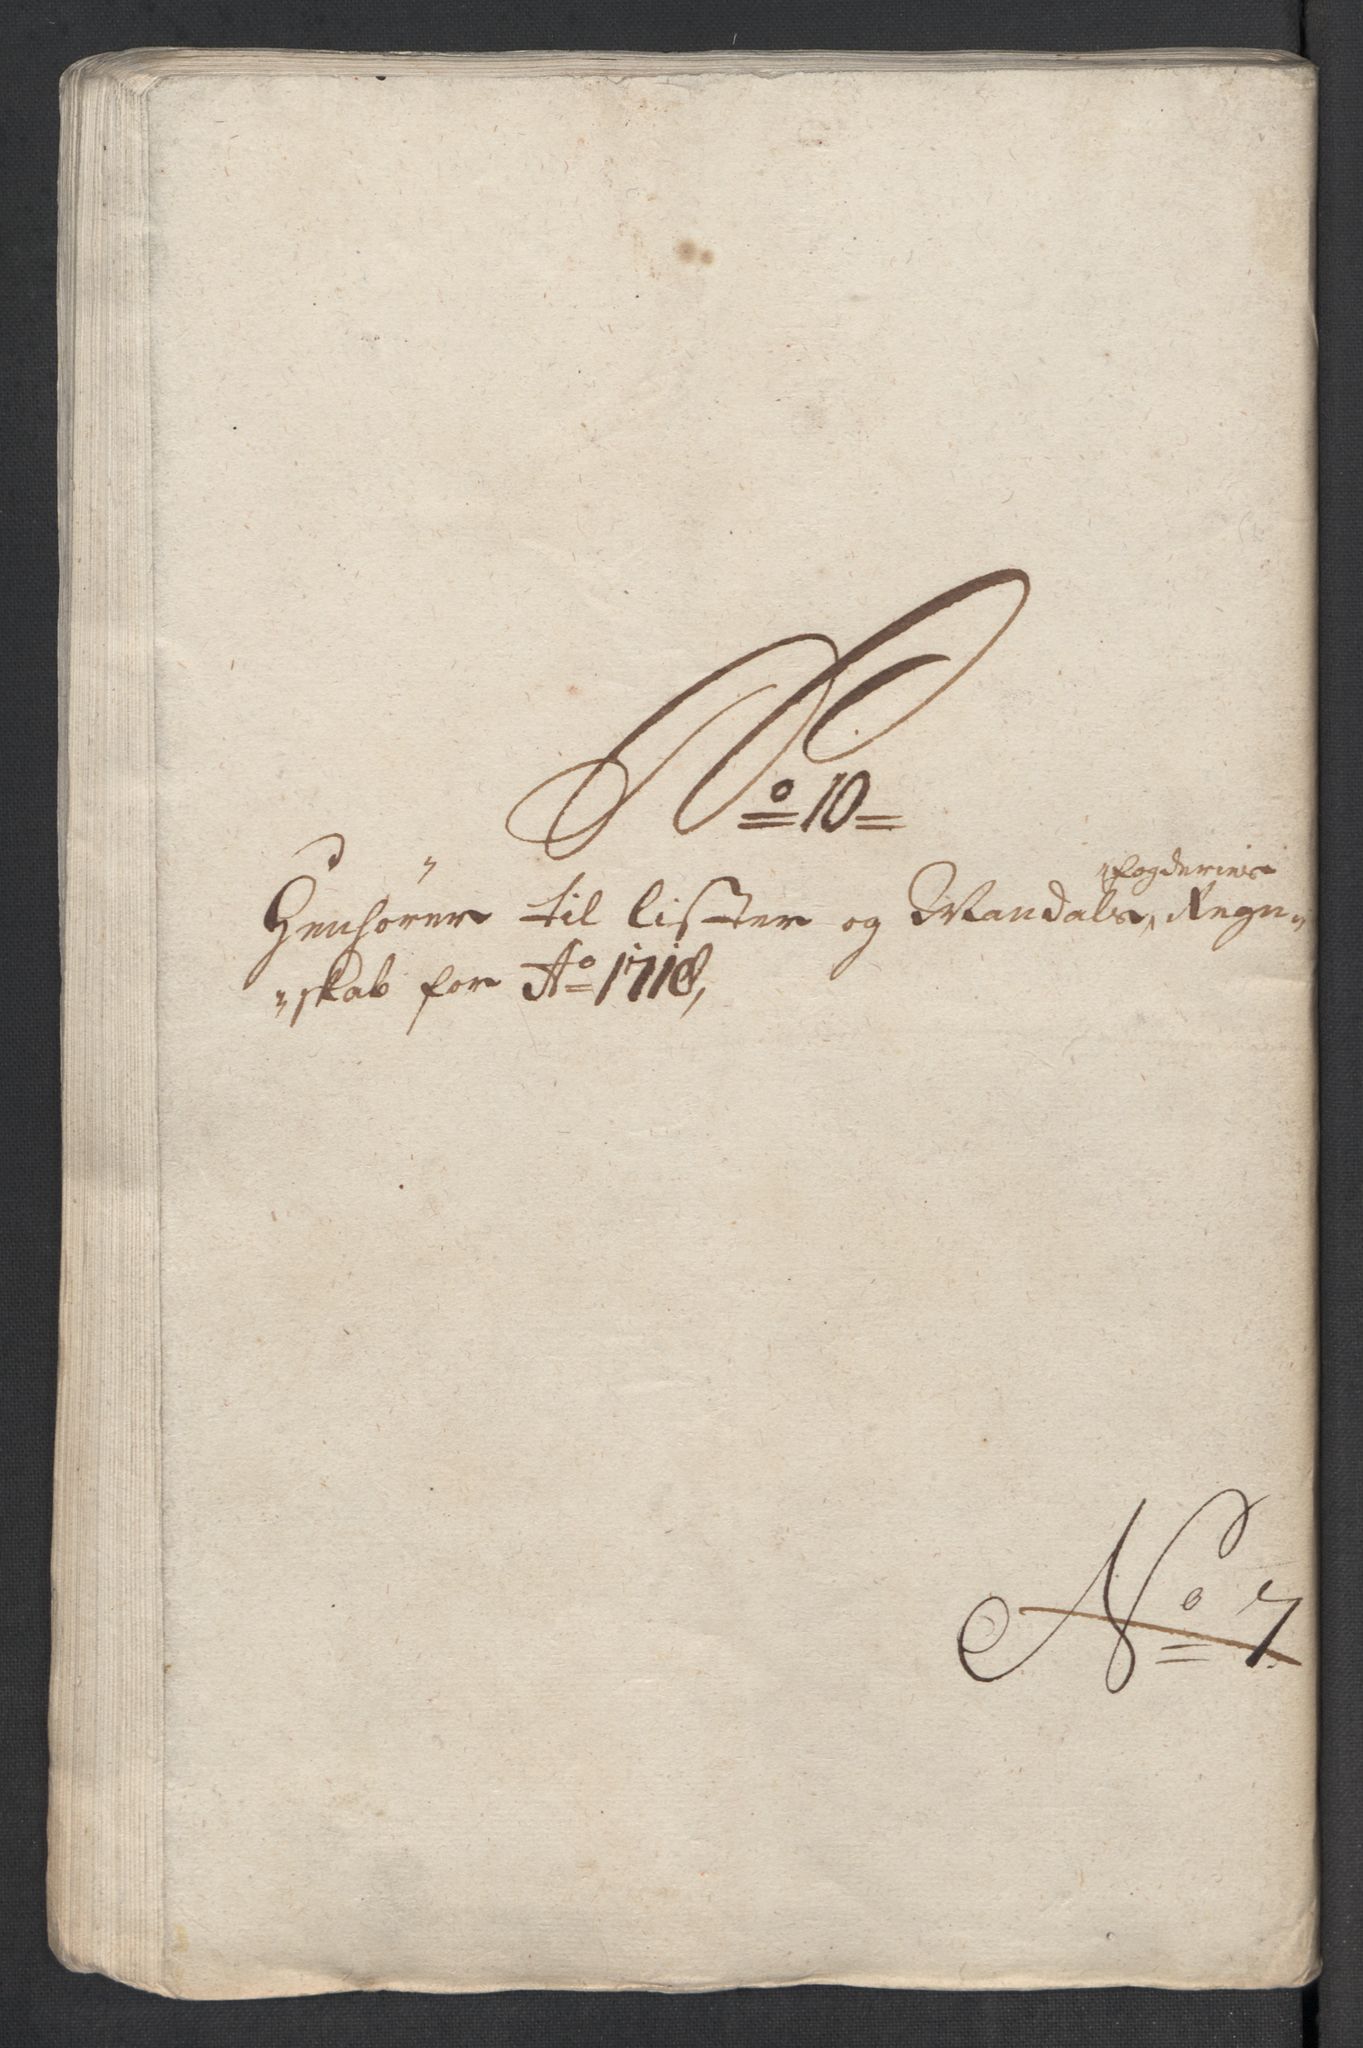 No 10
fogderies
Henhörer til Lister og Mandals, Regn-
skab for Ao 1718,
No 7